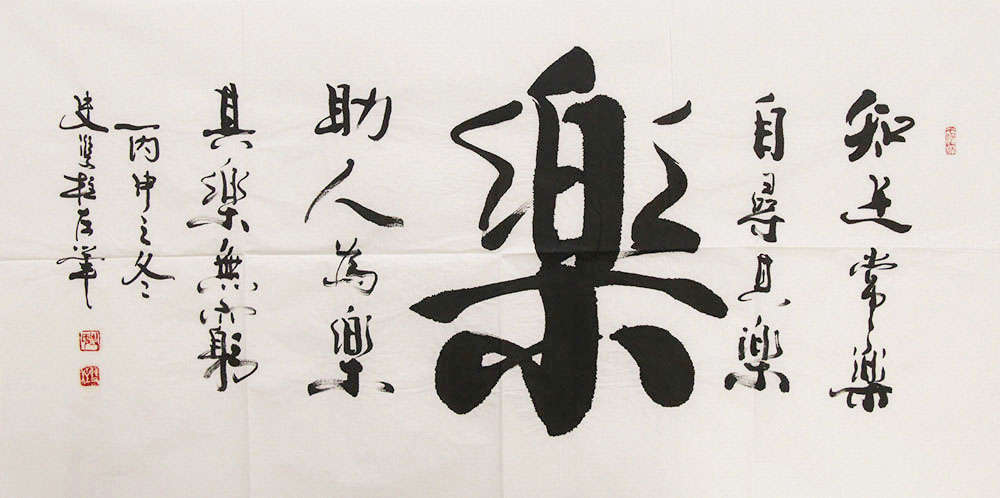 知足常樂
自尋其樂
樂
助人為樂
其樂無窮
丙申之冬
史雙柱左筆